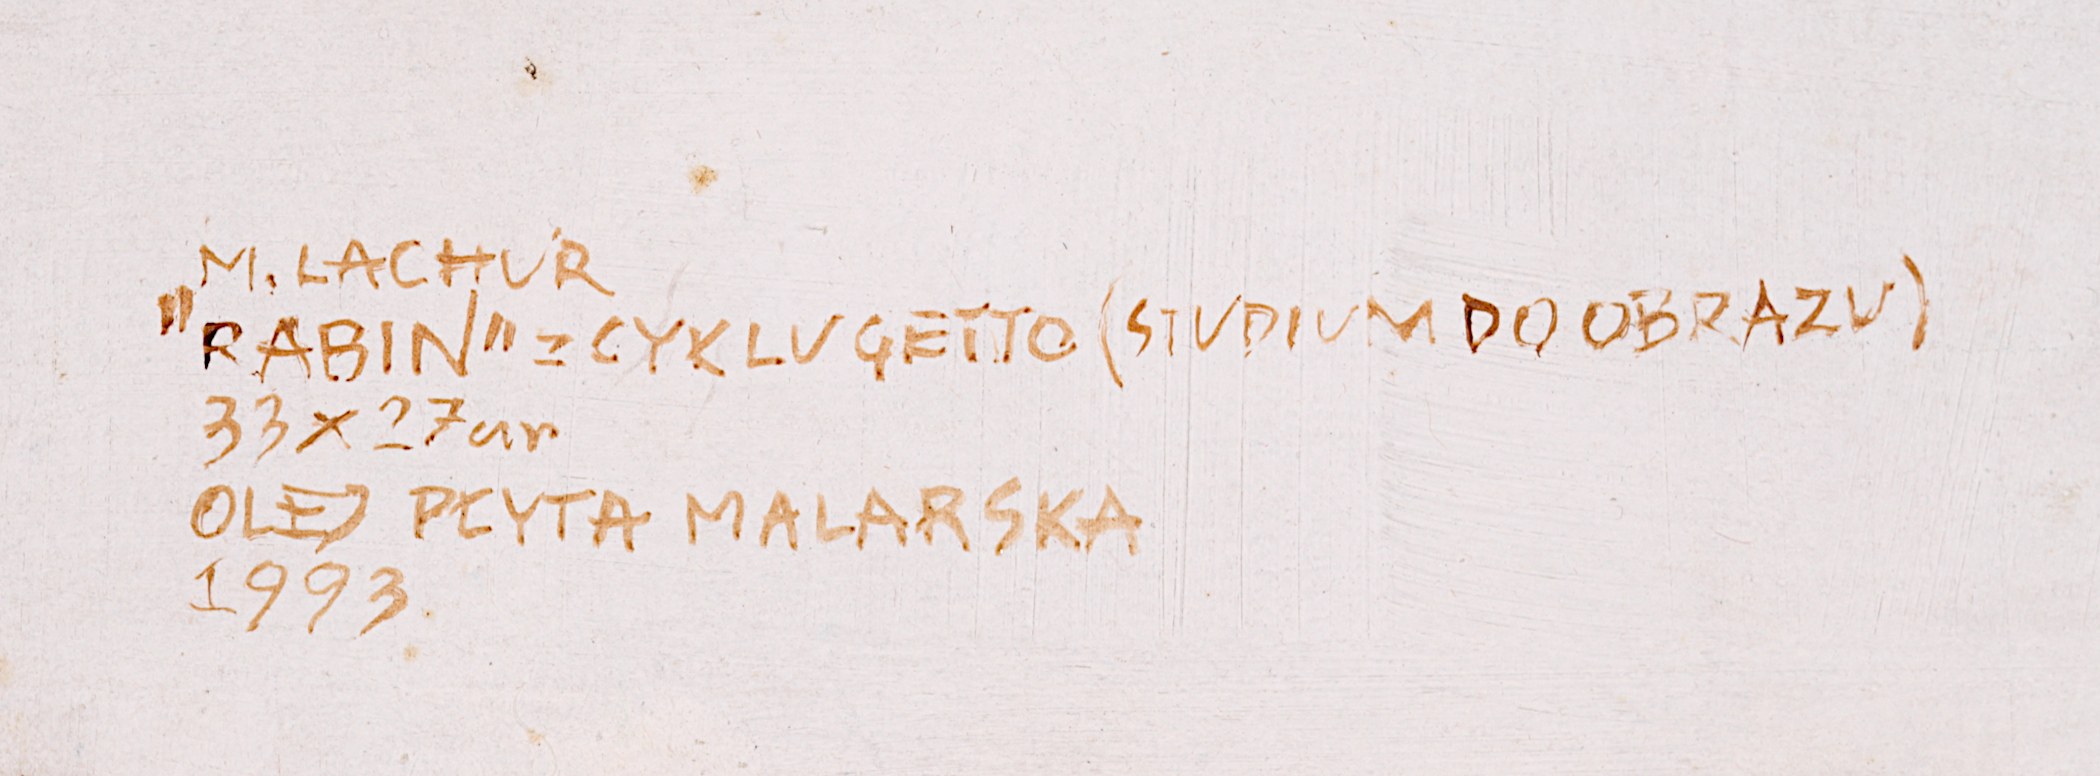 M. LACHUR
"RABIN" Z CYKLU GETTO (STUDIUM DO OBRAZU)
33 x 27 cm
OLEJ PŁYTA MALARSKA
1993